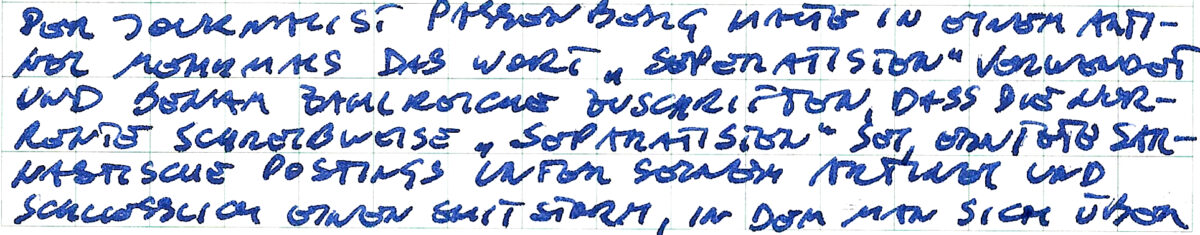 DER JOURNALIST PASSENBERG HATTE IN EINEM ARTI-
KEL MEHRMALS DAS WORT „SEPERATISTEN“ VERWENDET
UND BEKAM ZAHLREICHE ZUSCHRIFTEN, DASS DIE KOR-
REKTE SCHREIBWEISE „SEPARATISTEN“ SEI, ERNTETE SAR-
KASTISCHE POSTINGS UNTER SEINEM ARTIKEL UND
SCHLIESSLICH EINEN SHITSTORM, IN DEM MAN SICH ÜBER